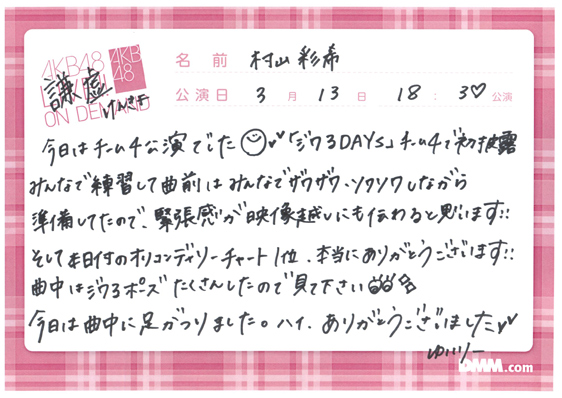 AKB48
LIVE!! ON DEMAND
AKB48
謙虚
けんきょ
名前 村山彩希
公演日 3月13日 18:30公演
今日はチーム4公演でした 「ジワるDAYS」チーム4で初披露
みんなで練習して曲前はみんなでザワザワ、ソワソワしながら
準備してたので、緊張感が映像越しにも伝わると思います!!
そして本日付のオリコンデイリーチャート1位、本当にありがとうございます!!
曲中はジワるポーズたくさんしたので見て下さい
今日は曲中に足がつりました。ハイ、ありがとうございました
ゆいりー
DMM.com